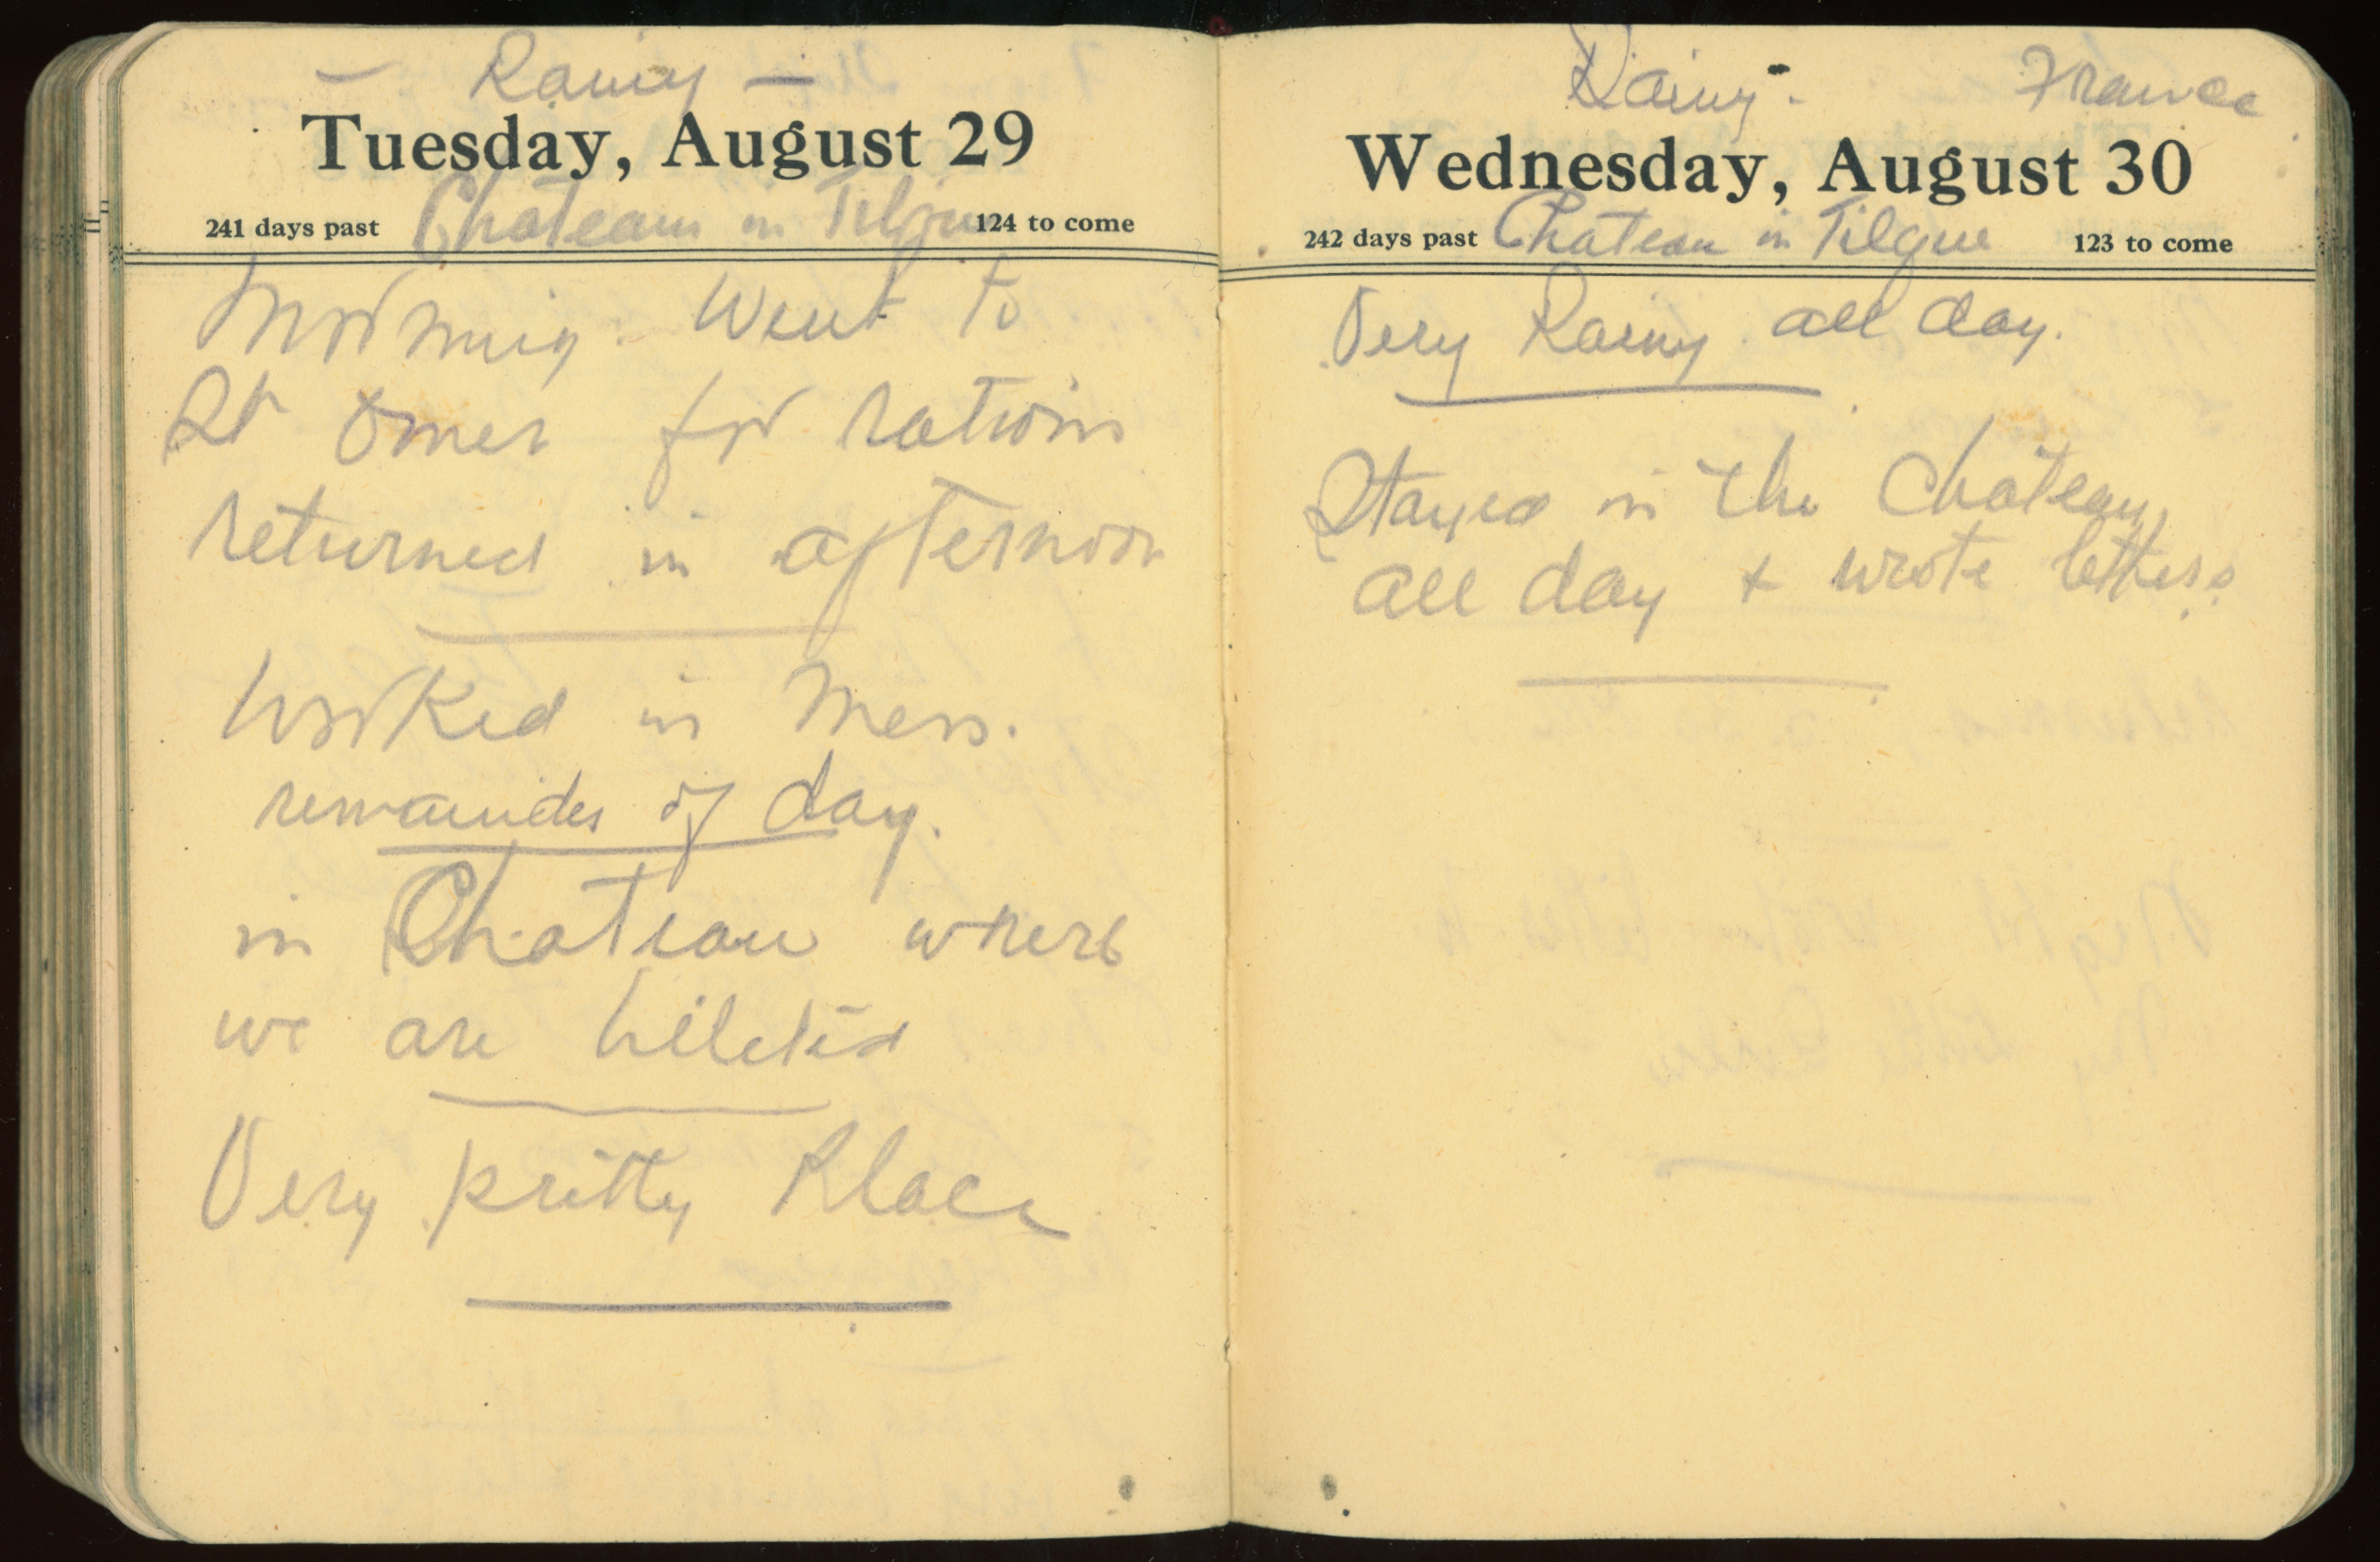 — Rainy —
Tuesday, August 29
241 days past Chateau in Tilque 124 to come
Morning. Went to
St Omer for rations
returned in afternoon
Worked in Mess.
remainder of day.
in Chateau where
we are billeted
Very pretty Place
Rainy - France
Wednesday, August 30
242 days past Chateau in Tilque 123 to come
Very Rainy all day.
Stayed in the Chateau
all day + wrote letters.